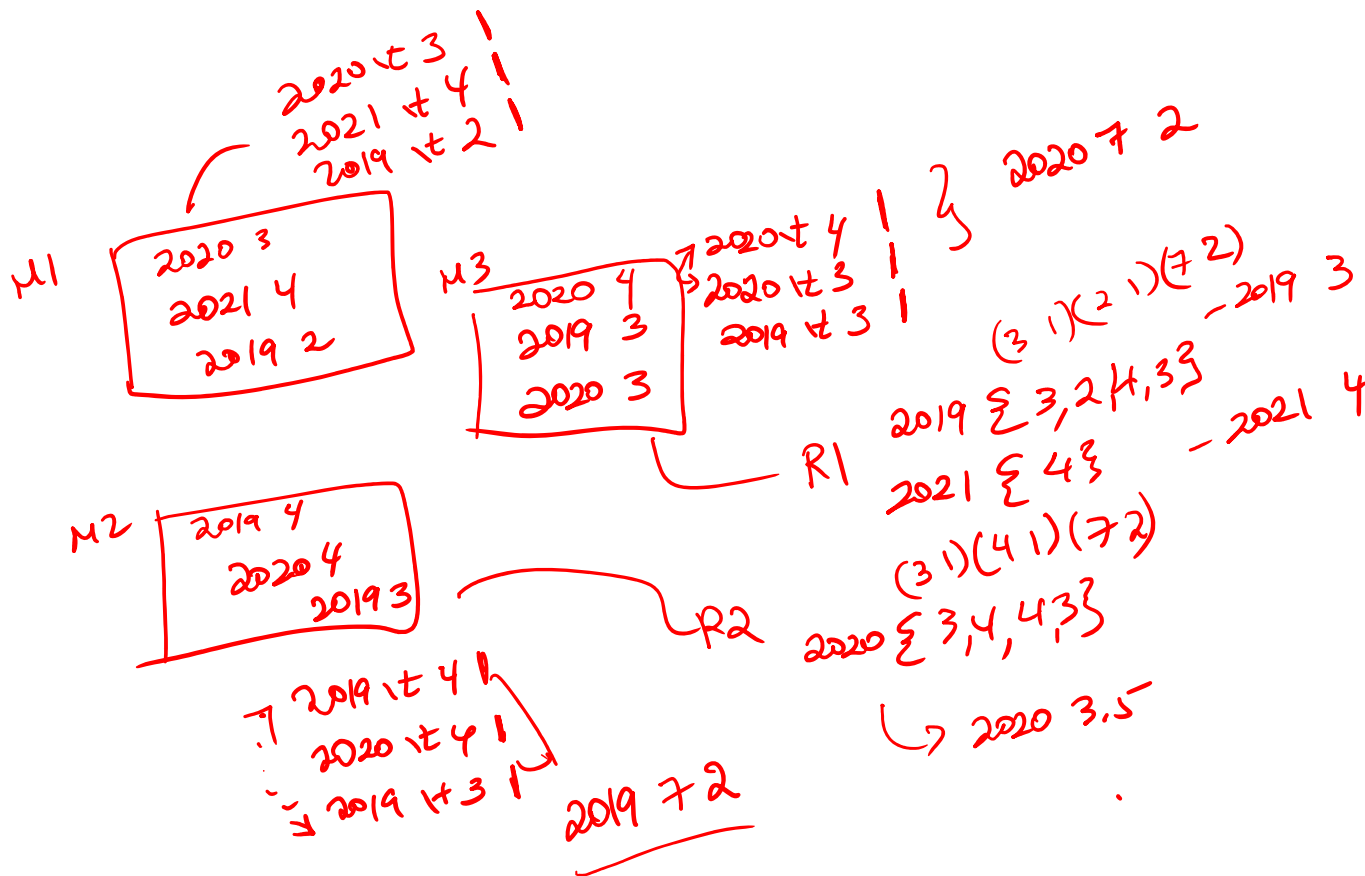 2020 \t 3 |
2021 \t 4 |
2019 \t 2 |
M1
2020 3
2021 4
2019 2
M3
2020 4
2019 3
2020 3
2020\t 4 |
2020 \t 3 |
2019 \t 3 |
} 2020 7 2
(3 1)(2 1)(7 2)
- 2019 3
R1
2019 { 3,2,4,3}
2021 { 4}
- 2021 4
M2
2019 4
2020 4
2019 3
(3 1)(4 1)(7 2)
R2
2020 { 3,4,4,3}
2020 3.5
2019 \t 4 |
2020 \t 4 |
2019 \t 3 |
2019 7 2